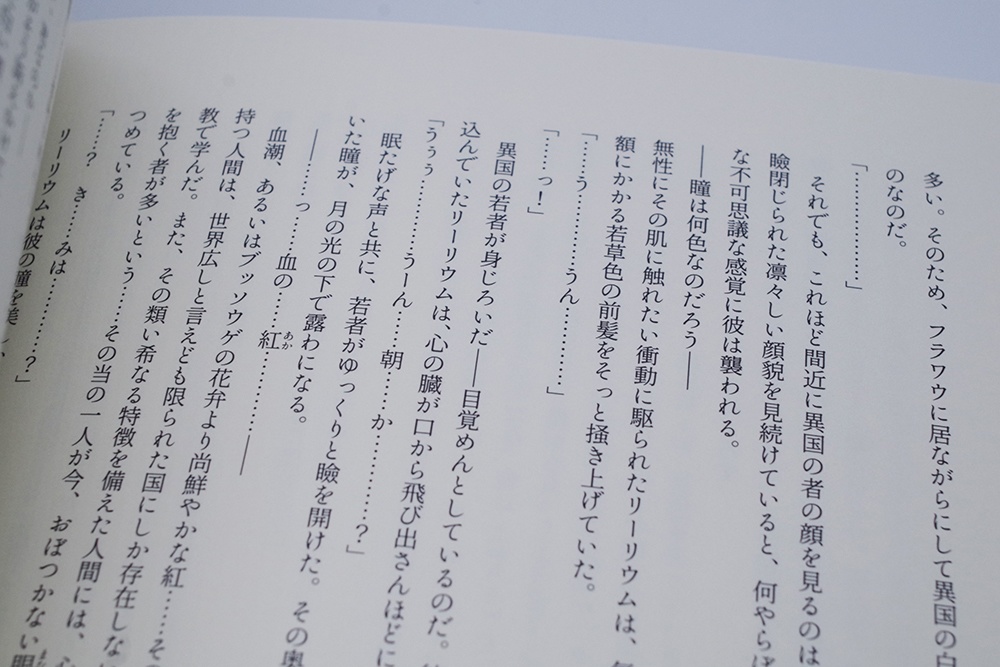 多い。そのため、フラワウに居ながらにして異国の
のなのだ。
「………………」
それでも、これほど間近に異国の者の顔を見るのは
瞼閉じられた凛々しい顔貌を見続けていると、何やら
な不可思議な感覚に彼は襲われる。
――瞳は何色なのだろう――
無性にその肌に触れたい衝動に駆られたリーリウムは、
額にかかる若草色の前髪をそっと掻き上げていた。
「……う…………うん……………」
「……っ！」
異国の若者が身じろいだ――目覚めんとしているのだ。
込んでいたリーリウムは、心の臓が口から飛び出さんほどに
「うぅぅ…………うーん……朝……か…………？」
眠たげな声と共に、若者がゆっくりと瞼を開けた。その奥
いた瞳が、月の光の下で露わになる。
――……っ……血の……紅あか……………――
血潮、あるいはブッソウゲの花弁より尚鮮やかな紅……その
持つ人間は、世界広しと言えども限られた国にしか存在しな
教で学んだ。また、その類い希なる特徴を備えた人間には、
を抱く者が多いという……その当の一人が今、おぼつかない
つめている。
「……？　き……みは…………？」
リーリウムは彼の瞳を